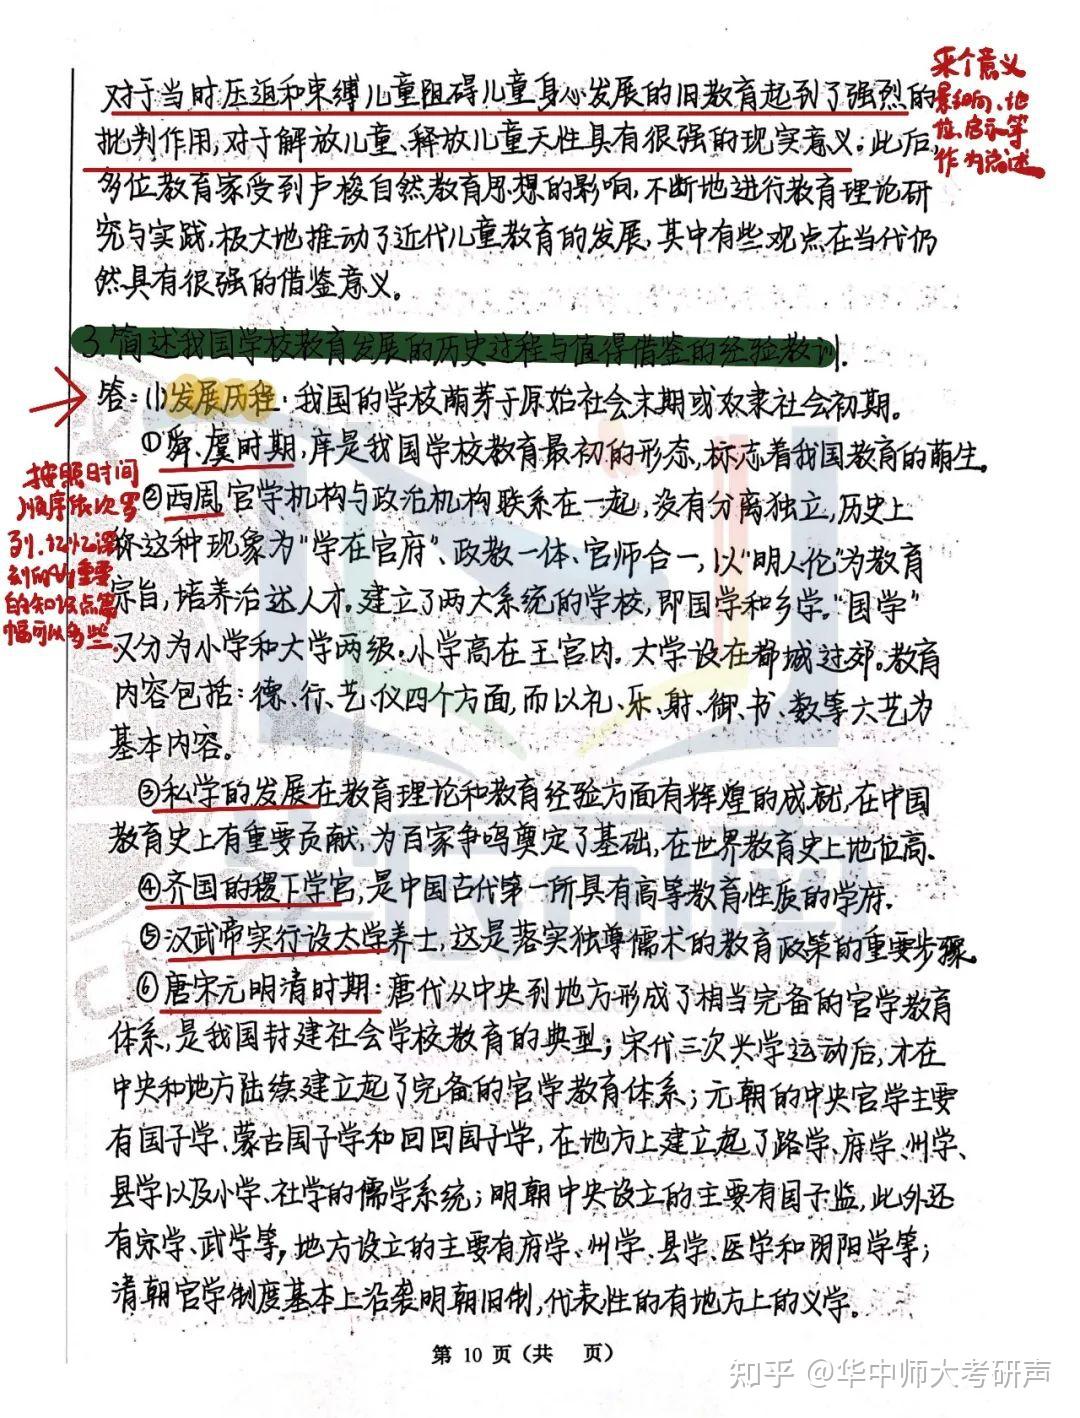 对于当时压迫和束缚儿童阻碍儿童身心发展的旧教育起到了强烈的
批判作用,对于解放儿童、释放儿童天性具有很强的现实意义;此后,
多位教育家受到卢梭自然教育思想的影响,不断地进行教育理论研
究与实践,极大地推动了近代儿童教育的发展,其中有些观点在当代仍
然具有很强的借鉴意义。
采个意义
影响、地
位、启示等
作为简述
3.简述我国学校教育发展的历史过程与值得借鉴的经验教训.
答:(1)发展历程:我国的学校萌芽于原始社会末期或奴隶社会初期。
①舜、虞时期,庠是我国学校教育最初的形态,标志着我国教育的萌生。
②西周,官学机构与政治机构联系在一起,没有分离独立,历史上
称这种现象为“学在官府”、政教一体、官师合一,以“明人伦”为教育
宗旨,培养治达人才。建立了两大系统的学校,即国学和乡学。“国学”
又分为小学和大学两级。小学高在王宫内,大学设在都城过郊。教育
内容包括:德、行、艺、仪四个方面,而以礼、乐、射、御、书、数等六艺为
基本内容。
按照时间
顺序依次罗
列、记忆深
刻的的重要
的知识点篇
幅可以多些
③私学的发展在教育理论和教育经验方面有辉煌的成就,在中国
教育史上有重要贡献,为百家争鸣奠定了基础,在世界教育史上地位高.
④齐国的稷下学宫,是中国古代第一所具有高等教育性质的学府.
⑤汉武帝实行设太学养士,这是落实独尊儒术的教育政策的重要步骤。
⑥唐宋元明清时期:唐代从中央到地方形成了相当完备的官学教育
体系,是我国封建社会学校教育的典型;宋代三次兴学运动后,才在
中央和地方陆续建立起了完备的官学教育体系;元朝的中央官学主要
有国子学、蒙古国子学和回回国子学,在地方上建立起了路学、府学、州学、
县学以及小学、社学的儒学系统;明朝中央设立的主要有国子监,此外还
有宗学、武学等,地方设立的主要有府学、州学、县学、医学和阴阳学等;
清朝官学制度基本上沿袭明朝旧制,代表性的有地方上的义学。
第 10 页(共 页)
知乎 @华中师大考研声